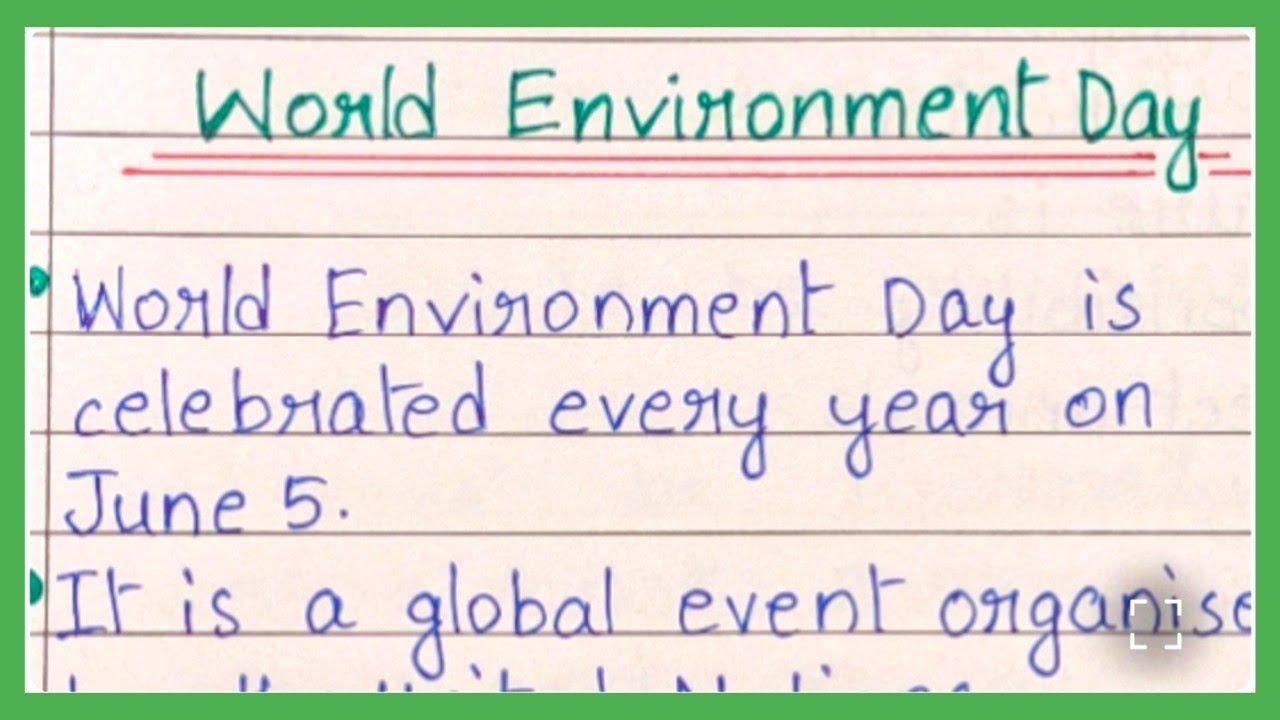 World Environment Day
World Environment Day is
celebrated every year on
June 5.
It is a global event organise